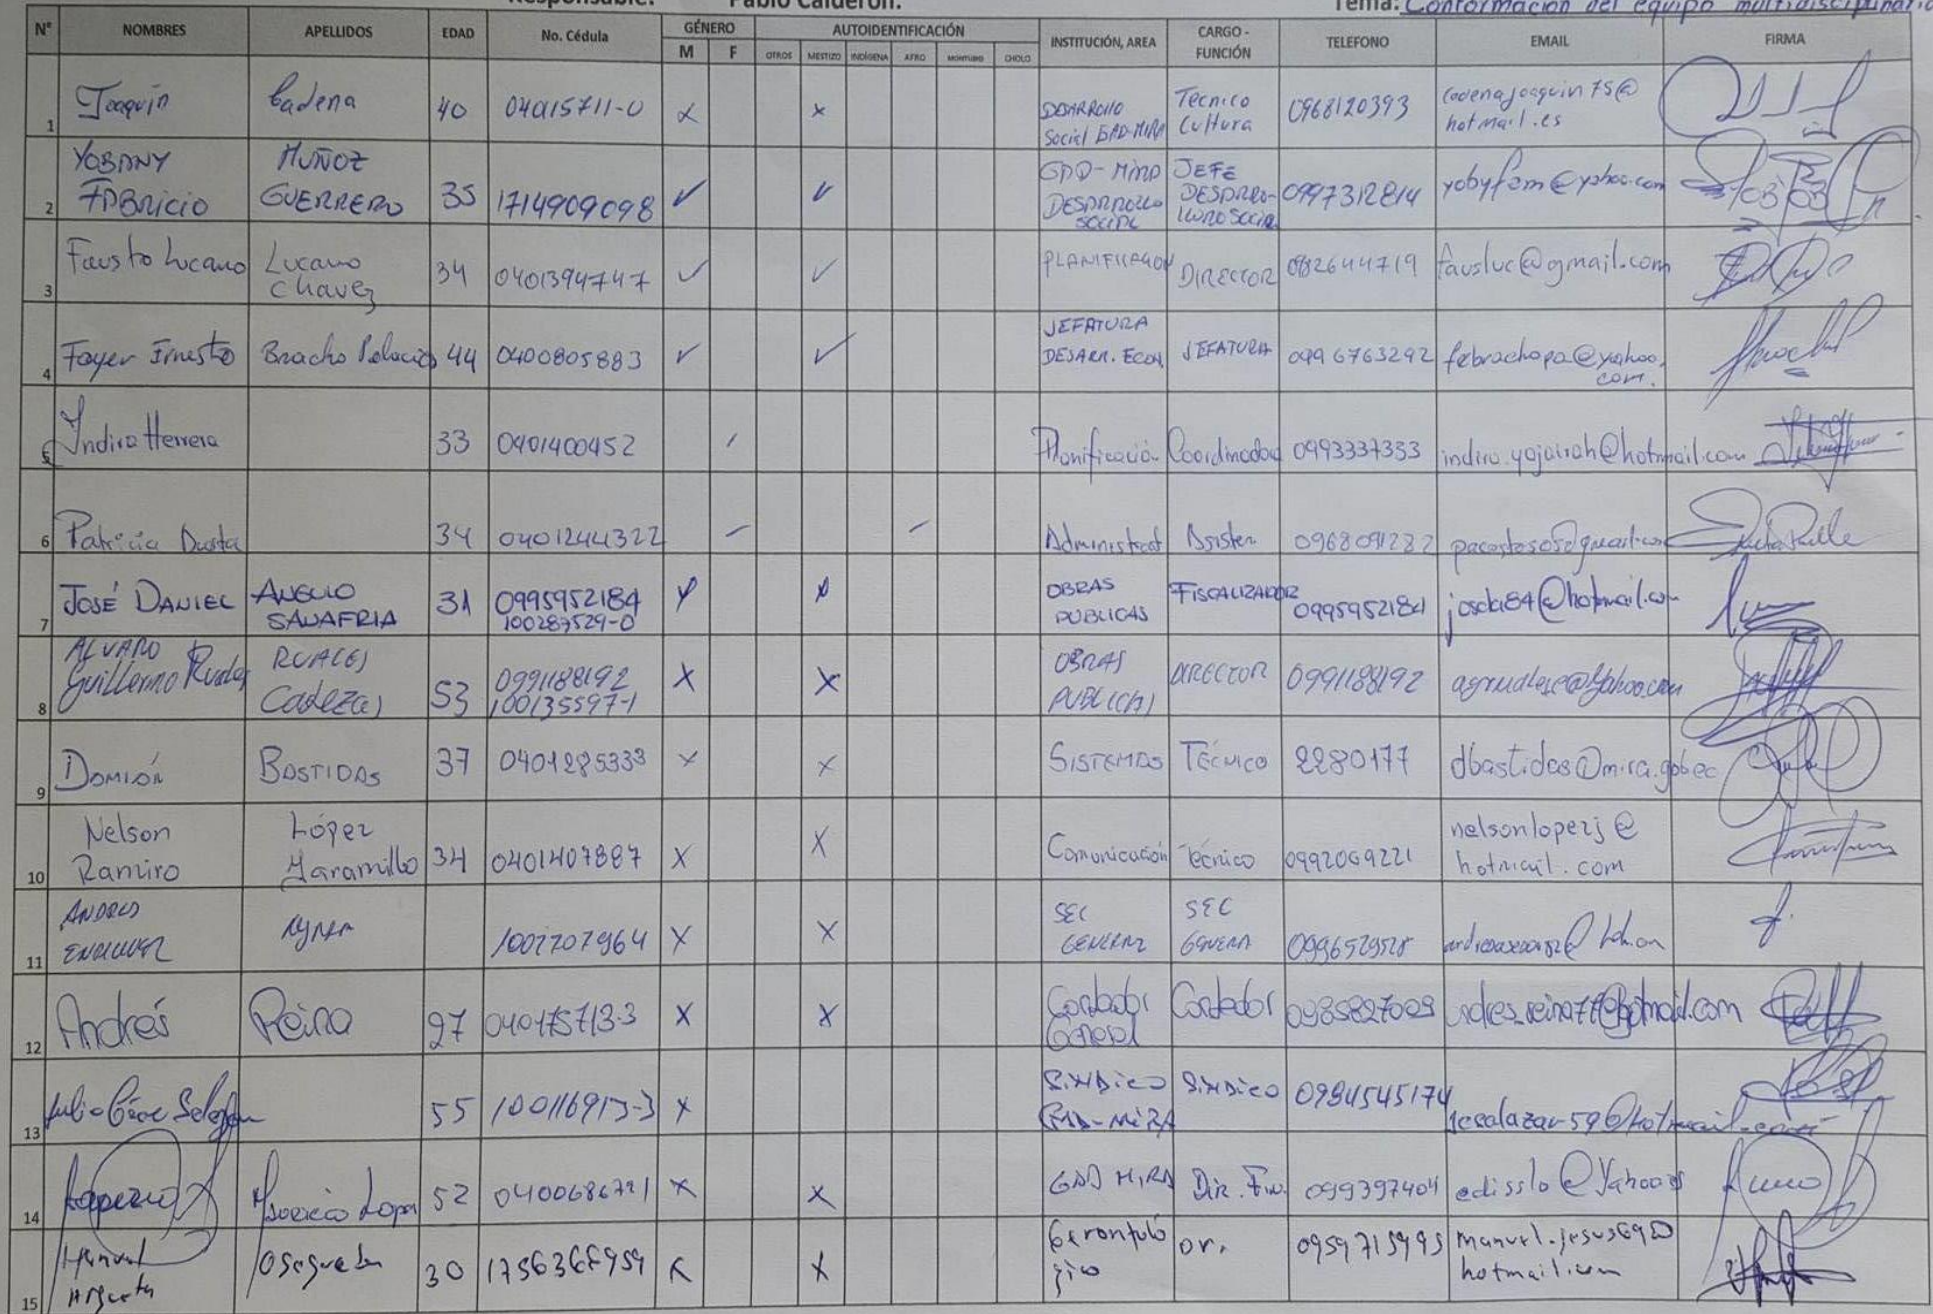 Responsable: Pablo Calderón. Tema: Conformación del equipo multidisciplinario
N° NOMBRES APELLIDOS EDAD No. Cédula GÉNERO AUTOIDENTIFICACIÓN INSTITUCIÓN, AREA CARGO - FUNCIÓN TELEFONO EMAIL FIRMA
M F OTROS MESTIZO INDÍGENA AFRO MONTUBIO CHOLO
1 Joaquín Cadena 40 x x Desarrollo Social GAD-MIRA Técnico Cultura 0968120393 cadenajoaquin75@hotmail.es
2 YOBANY FABRICIO MUÑOZ GUERRERO 35 1714909098 ✓ ✓ GAD-MIRA DESARROLLO SOCIAL JEFE 0997312814
3 Fausto Lucano Lucano Chavez 34 0401394747 ✓ ✓ PLANIFICACION DIRECTOR 0982644719 fausluc@gmail.com
4 Fayer Ernesto Bracho Palacios 44 0400805883 ✓ ✓ JEFATURA DESARR. ECON JEFATURA 0996763292 febrachopa@yahoo.com.
5 Indira Herrera 33 0401400452 / Planificación Coordinadora 0993337353 indira.yajairah@hotmail.com
6 Patricia 34 0401244322 – – Administrat Asisten 0968091282
7 JOSÉ DANIEL ANGULO SANAFRIA 31 0995952184 100287529-0 x x OBRAS PUBLICAS FISCALIZADOR 0995952184 josda84@hotmail.com
8 ALVARO Guillermo RUALES 53 0991188192 100135597-1 X X OBRAS PUBLICAS DIRECTOR 0991188192
9 DAMIÁN BASTIDAS 37 0401285333 x x SISTEMAS TÉCNICO 2280177 dbastidas@mira.gob.ec
10 Nelson Ramiro López Jaramillo 34 0401407887 X X Comunicación Técnico 0992069221 nelsonloperj@hotmail.com
11 ANDRES 1002707964 X X SEC GENERAL SEC GENERAL
12 Andrés Reina 27 040175713-3 X X Contador General Contador 0985827009 andres_reina77@hotmail.com
13 55 X Sindico GAD-MIRA Sindico 0984545174 jcsalazar-59@hotmail.com
14 52 0400686721 X X GAD MIRA Dir. Fin. 099397404 edisslo@Yahoo.es
15 Manuel Argueta Osegueda 30 X X Gerontológico 0959715995 hotmail.com